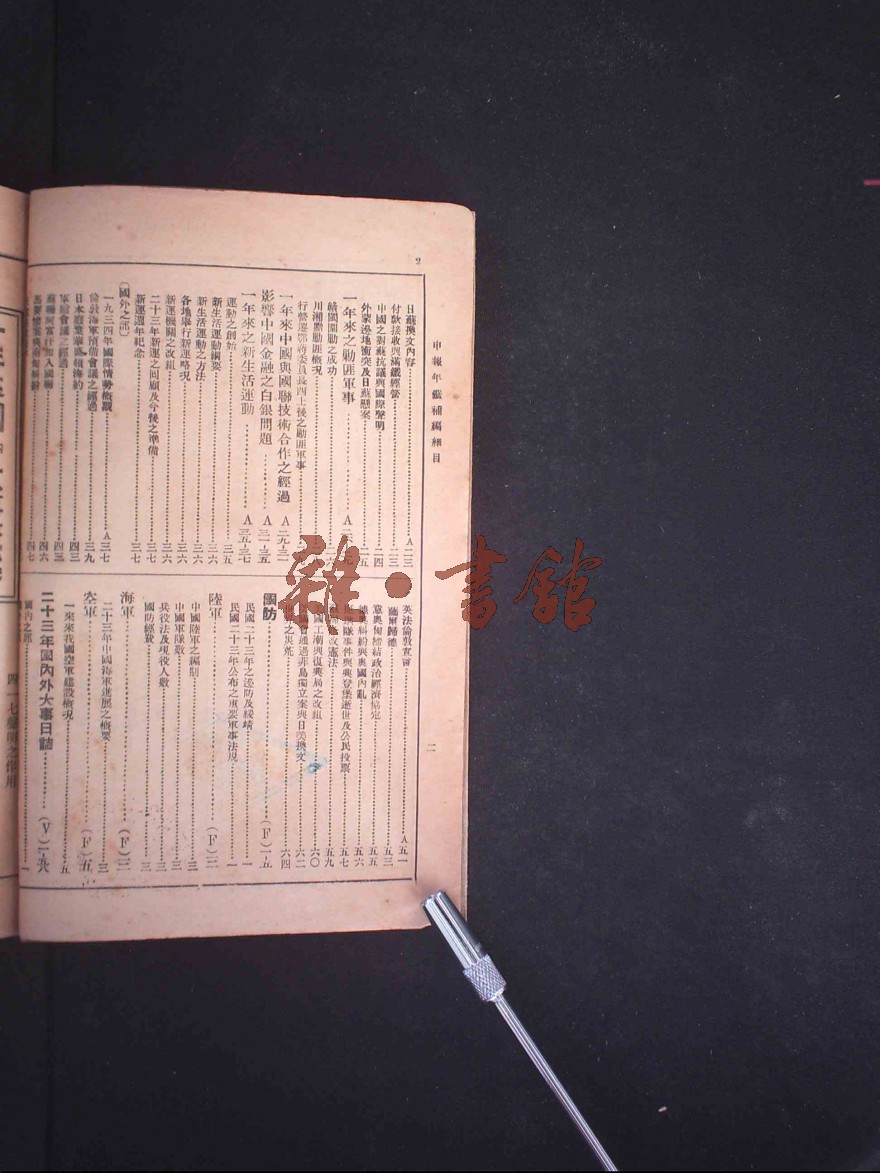 2
申報年鑑補編細目
二
日蘇換文內容……A二三
付款接收與滿鐵經營……二三
中國之對蘇抗議與國際聲明……二四
外蒙邊地衝突及日蘇懸案……二五
一年來之勦匪軍事……A
贛閩圍勦之成功
川湘黔勦匪概況
行營遷鄂蔣委員長四上後之勦匪軍事
一年來中國與國聯技術合作之經過 A
影響中國金融之白銀問題……A三一-三五
一年來之新生活運動……A三五-三七
運動之創始……三五
新生活運動綱要……三六
新生活運動之方法……三六
各地舉行新運略況……三六
新運機關之改組……三六
二十三年新運之回顧及今後之準備……三七
新運週年紀念……三七
〔國外之部〕
一九三四年國際情勢概觀……A三七
倫敦海軍預備會議之經過……三九
日本廢棄華盛頓海約……四三
軍縮會議之經過……四三
蘇聯阿富汗加入國聯……四六
四七
英法倫敦宣言……A五一
薩爾歸德……五三
意奧匈締結政治經濟協定……五五
糾紛與奧國內亂……五六
隊事件與興登堡逝世及公民投票……五七
改憲法……五九
工潮與復興局之改組……六〇
通過菲島獨立案與日美換文……六二
之災荒……六四
國防……(F)一-五
民國二十三年之邊防及綏靖……一
民國二十三年公布之重要軍事法規……一
陸軍……(F)三
中國陸軍之編制……三
中國軍隊數……三
兵役法及現役人數……三
國防經費……三
海軍……(F)三
二十三年中國海軍進展之概要……三
空軍……(F)五
一來來我國空軍建設概況……五
二十三年國內外大事日誌……(V)一-六八
國內之部……一
雜·書館